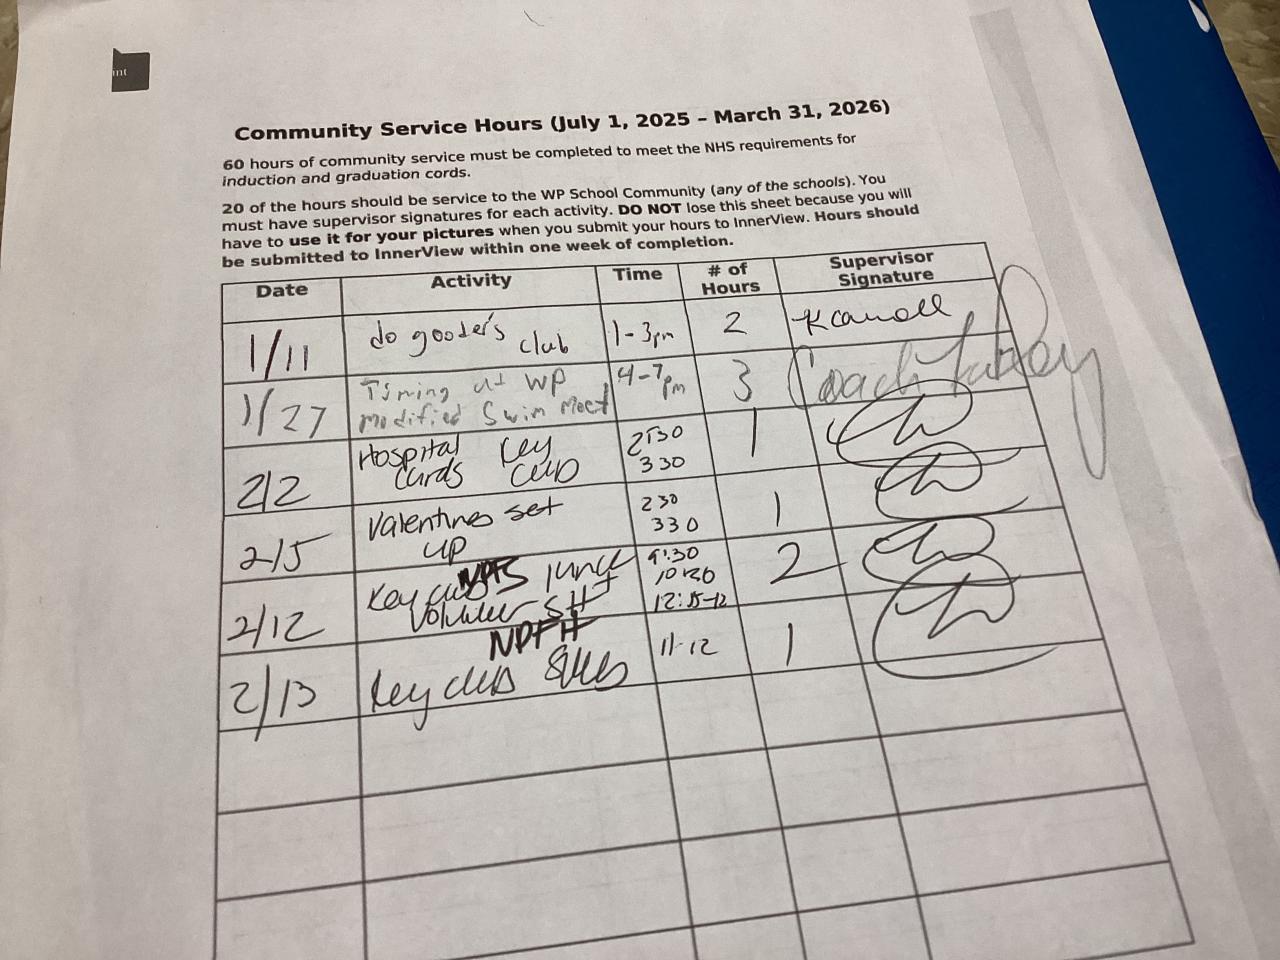 int
Community Service Hours (July 1, 2025 – March 31, 2026)
60 hours of community service must be completed to meet the NHS requirements for
induction and graduation cords.
20 of the hours should be service to the WP School Community (any of the schools). You
must have supervisor signatures for each activity. DO NOT lose this sheet because you will
have to use it for your pictures when you submit your hours to InnerView. Hours should
be submitted to InnerView within one week of completion.
Date Activity Time # of Hours Supervisor Signature
1/11 do gooder's club 1-3pm 2
1/27 Timing at WP modified Swim Meet 4-7pm 3 Coach
2/2 Hospital cards Key Club 2:30 330 1
2/5 Valentines set up 230 330 1
2/12 Key club lunch 9:30 2
2/13 Key club 11-12 1